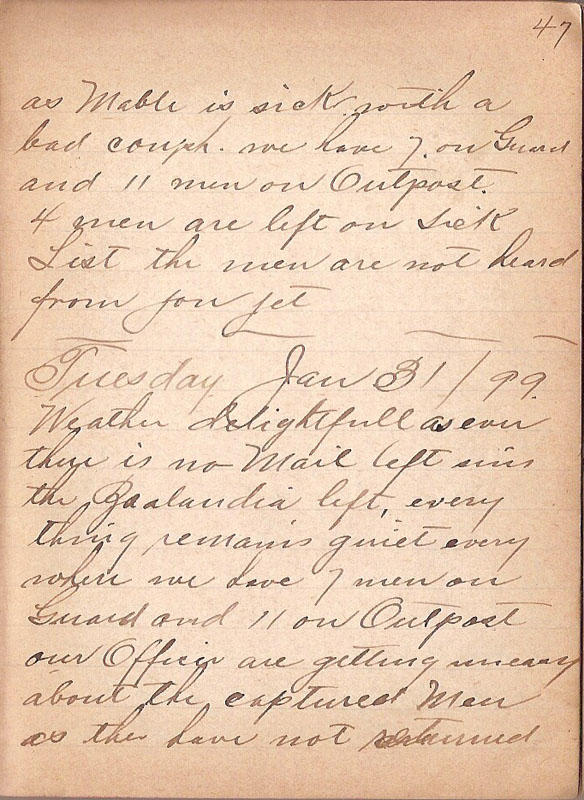 47
as Mable is sick with a
bad cough. we have 7. on Guard
and 11 men on Outpost.
4 men are left on Sick
List the men are not heard
from jet
Tuesday Jan 31/99.
Weather delightfull as ever
there is no Mail left sins
the Zealandia left, every
thing remains quiet every
where we have 7 men on
Guard and 11 on Outpost
our Officer are getting uneasy
about the captured Men
as ther have not returned